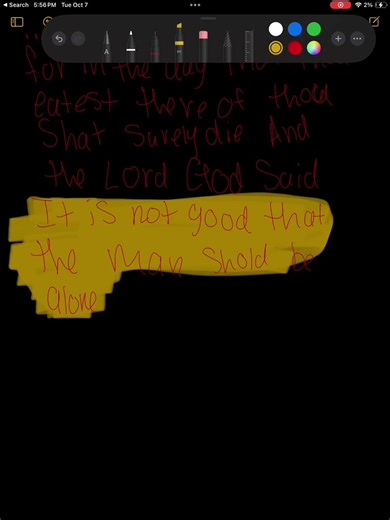 Search 5:56 PM Tue Oct 7 2%
for in the day
eatest there of thou
Shat Surely die And
the Lord God Said
It is not good that
the man Shold be
alone